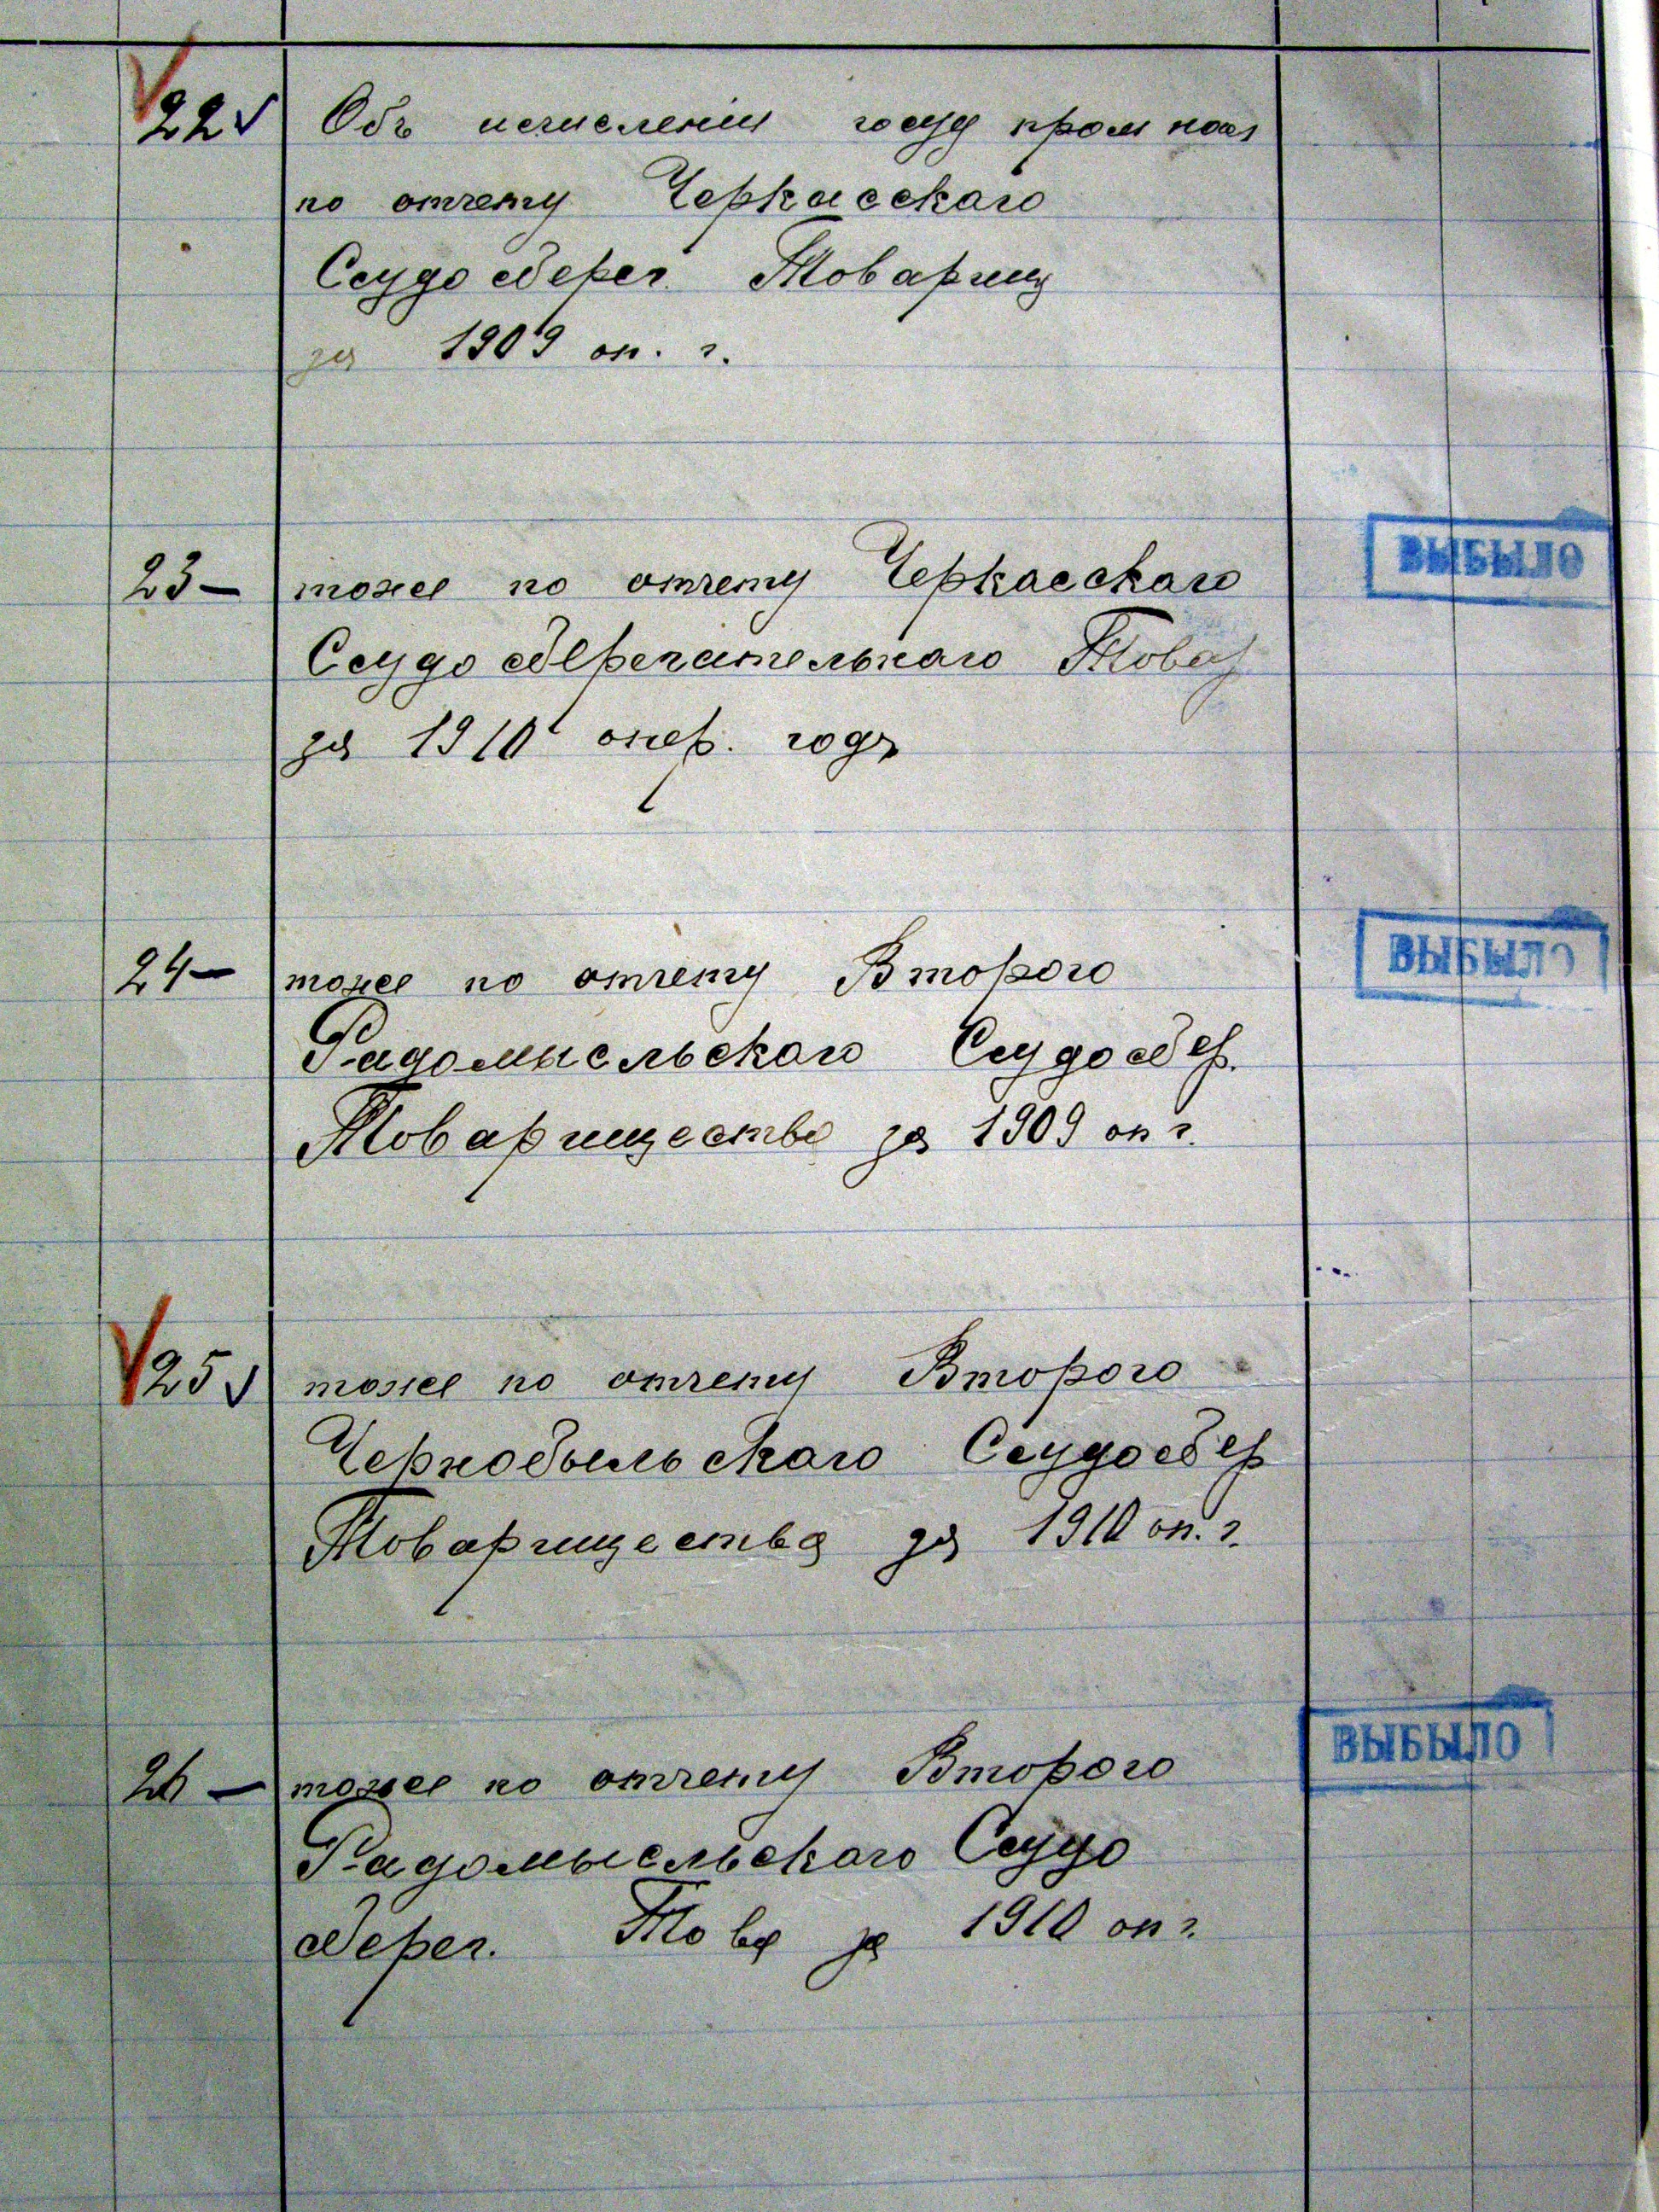 22 Объ исчисленіи госуд пром нал
по отчету Черкасскаго
Ссудо сберег. Товарищ
за 1909 оп. г.
23 – тоже по отчету Черкасскаго ВЫБЫЛО
Ссудо сберегательнаго Товар
за 1910 опер. годъ
24 – тоже по отчету Второго ВЫБЫЛО
Радомысльскаго Ссудосбер.
Товарищества за 1909 оп г.
25 тоже по отчету Второго
Чернобыльскаго Ссудосбер
Товарищества за 1910 оп. г.
26 – тоже по отчету Второго ВЫБЫЛО
Радомысльскаго Ссудо
сберег. Това за 1910 оп г.